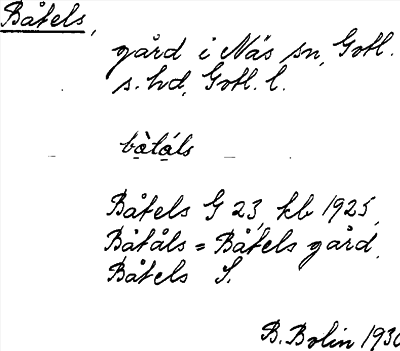 Båtels,
gård i Näs sn, Gotl.
s. hd, Gotl. l.
bòtáls
Båtels G 23, kb 1925,
Båtåls = Båtels gård,
Båtels S.
B. Bolin 1930